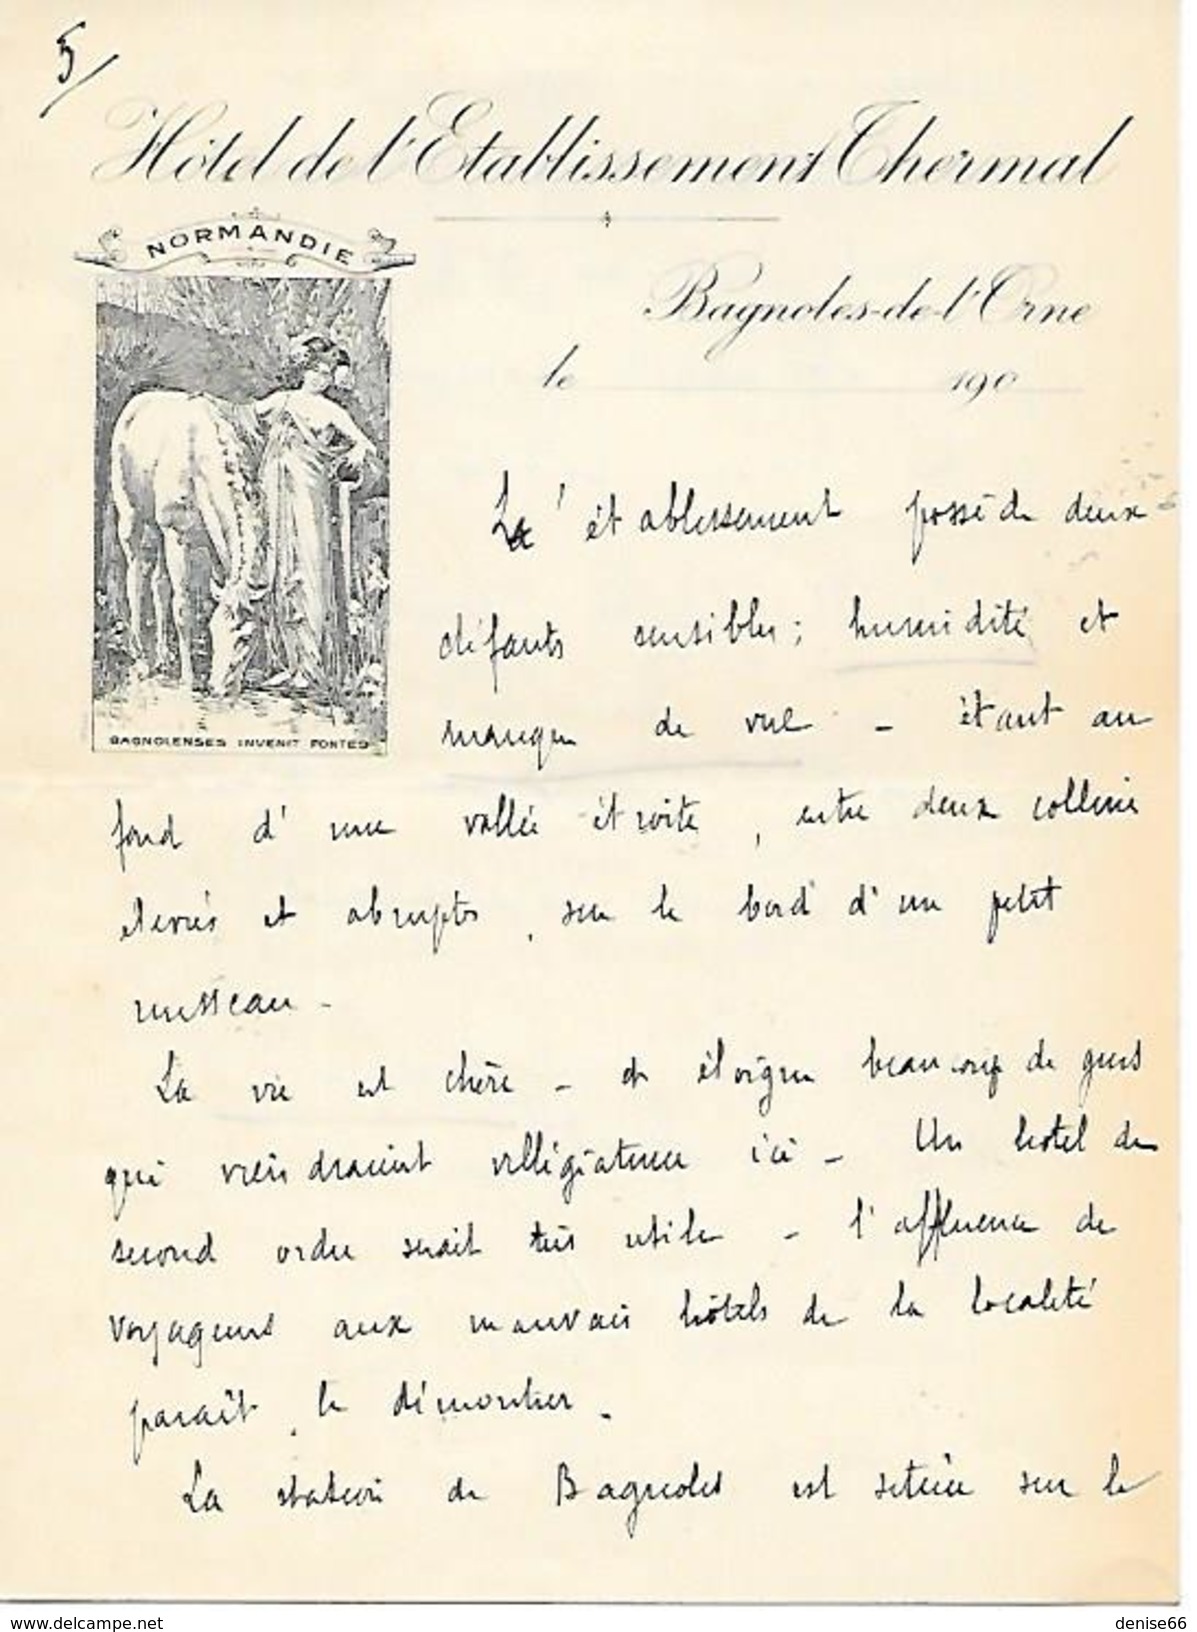 5/
Hôtel de l'Etablissement Thermal
NORMANDIE
Bagnoles-de-l'Orne
le 190
BAGNOLENSES INVENIT FONTES
L'établissement possède deux
défauts sensibles ; humidité et
manque de vue – étant au
fond d'une vallée étroite, entre deux collines
élevées et abruptes, sur le bord d'un petit
ruisseau –
La vie est chère – et éloigne beaucoup de gens
qui viendraient villégiature ici – Un hotel de
second ordre serait très utile – l'affluence de
voyageurs aux mauvais hôtels de la localité
paraît le démontrer.
La station de Bagnoles est située sur le
www.delcampe.net
denise66